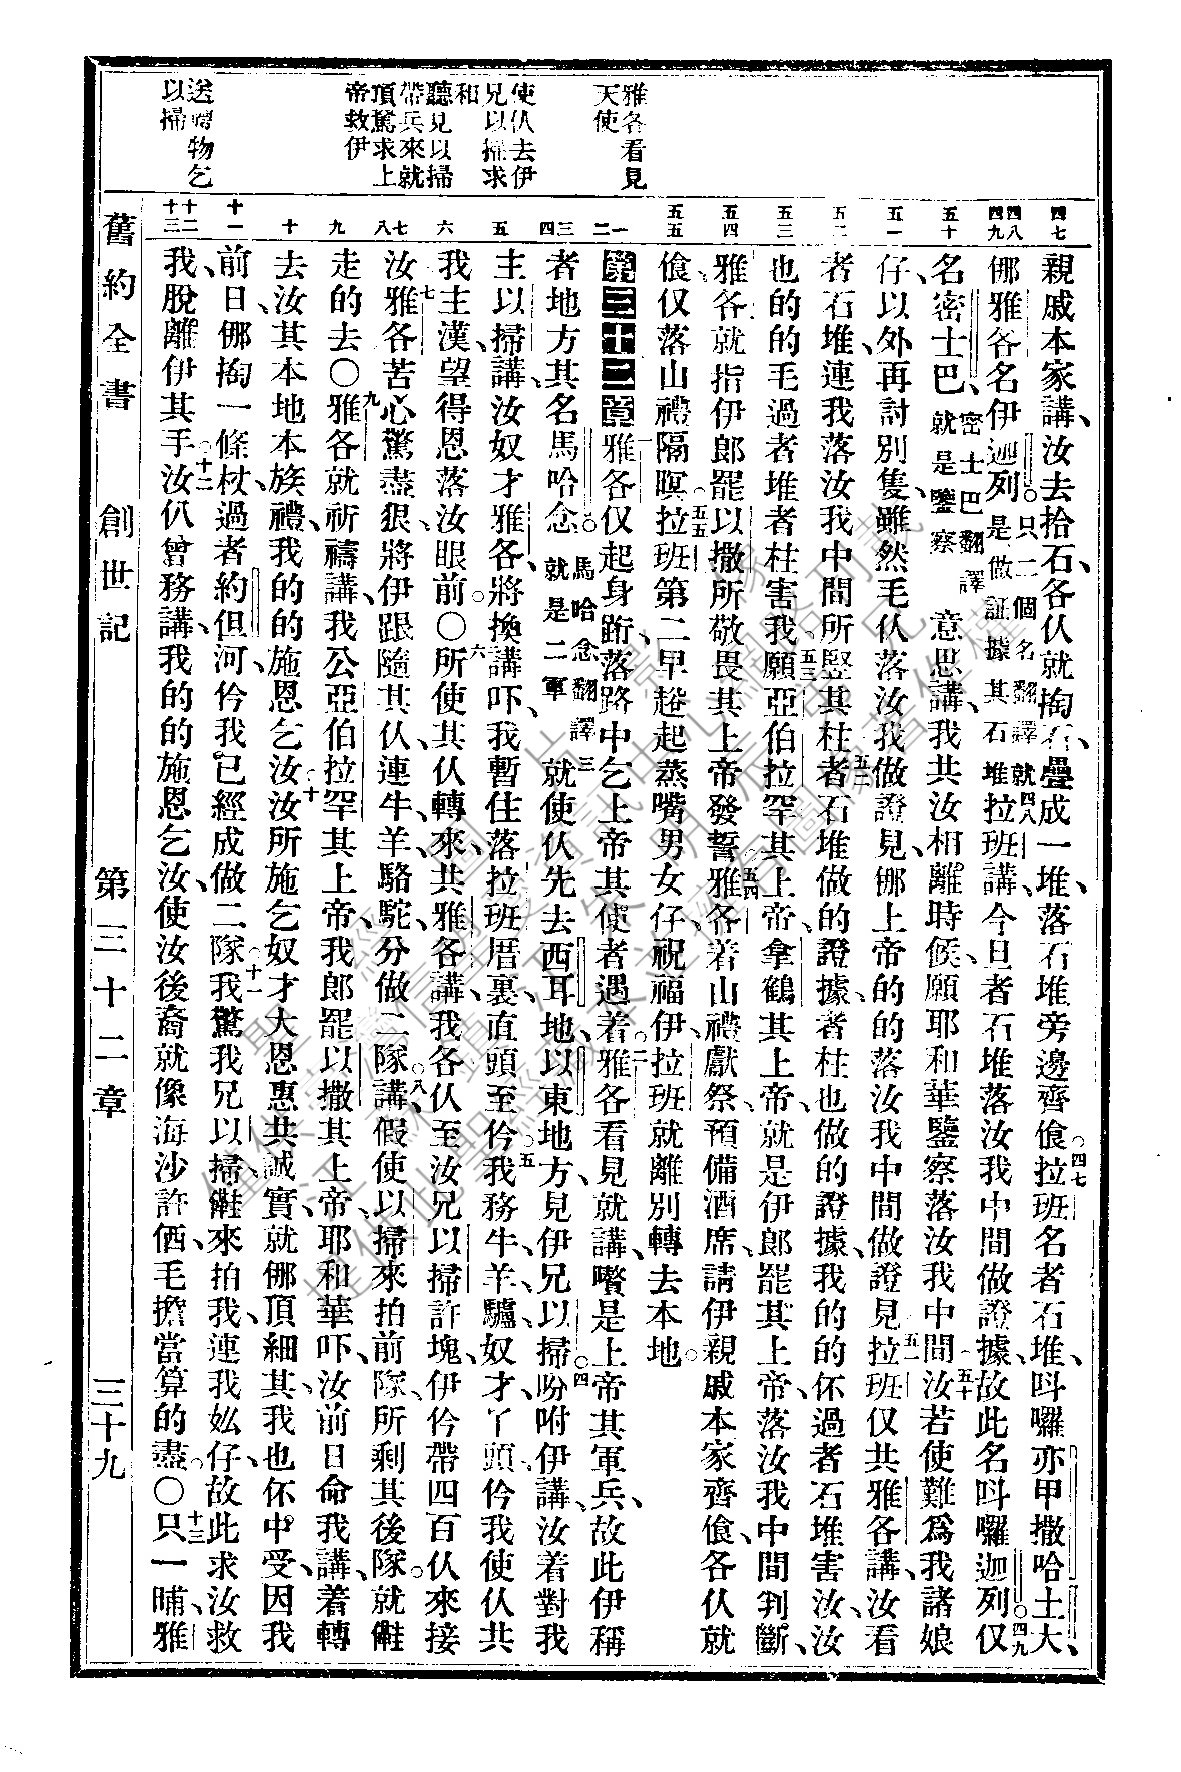 雅各看見
天使
使仈去伊
兄以掃求
和
聽見以掃
帶兵來就
頂驚求上
帝救伊
送禮物乞
以掃
四七
四八
四九
五十
五一
五二
五三
五四
五五
一
二
三
四
五
六
七
八
九
十
十一
十二
十三
親戚本家講、汝去拾石、各仈就掏石疊成一堆、落石堆旁邊齊飡。四七拉班名者石堆、呌囉亦甲撒哈土大、
㑚雅各名伊迦列。只二個名翻譯就是做証據其石堆四八拉班講、今旦者石堆落汝我中間做證據、故此名呌囉迦列。四九仅
名密士巴、密士巴翻譯就是鑒察意思講、我共汝相離時候、願耶和華鑒察落汝我中間、五十汝若使難爲我諸娘
仔、以外再討別隻、雖然毛仈落汝我做證見、㑚上帝的的落汝我中間做證見、五一拉班仅共雅各講、汝看
者石堆、連我落汝我中間所豎其柱、五二者石堆做的證據、者柱也做的證據、我的的伓過者石堆害汝、汝
也的的毛過者堆者柱害我、五三願亞伯拉罕其上帝、拿鶴其上帝、就是伊郎罷其上帝、落汝我中間判斷、
雅各就指伊郎罷以撒所敬畏其上帝發誓、五四雅各着山禮獻祭、預備酒席、請伊親戚本家齊飡、各仈就
飡、仅落山禮隔暝。五五拉班第二早趯起、蒸嘴男女仔、祝福伊、拉班就離別轉去本地。
第三十二章一雅各仅起身跡落路中、乞上帝其使者遇着。二雅各看見就講、嚽是上帝其軍兵、故此伊稱
者地方其名馬哈念。馬哈念翻譯就是二軍三就使仈先去西耳地、以東地方、見伊兄以掃。四吩咐伊講、汝着對我
主以掃講、汝奴才雅各、將換講吓、我暫住落拉班厝裏、直頭至仱。五我務牛、羊、驢、奴才、丫頭、仱我使仈共
我主漢、望得恩落汝眼前。〇六所使其仈轉來、共雅各講、我各仈至汝兄以掃許塊、伊仱帶四百仈來接
汝、七雅各苦心驚盡狠、將伊跟隨其仈、連牛、羊、駱駝、分做二隊、八講、假使以掃來拍前隊、所剩其後隊、就䧹
走的去〇九雅各就祈禱講、我公亞伯拉罕其上帝、我郎罷以撒其上帝、耶和華吓、汝前日命我講、着轉
去汝其本地本族禮、我的的施恩乞汝、十汝所施乞奴才大恩惠、共誠實、就㑚頂細其、我也伓中受、因我
前日㑚掏一條杖、過者約但河、仱我已經成做二隊、十一我驚我兄以掃䧹來拍我、連我奻仔、故此求汝救
我脫離伊其手、十二汝仈曾務講、我的的施恩乞汝、使汝後裔就像海沙許俖、毛擔當算的盡。〇十三只一晡、雅
舊約全書 創世記 第三十二章 三十九